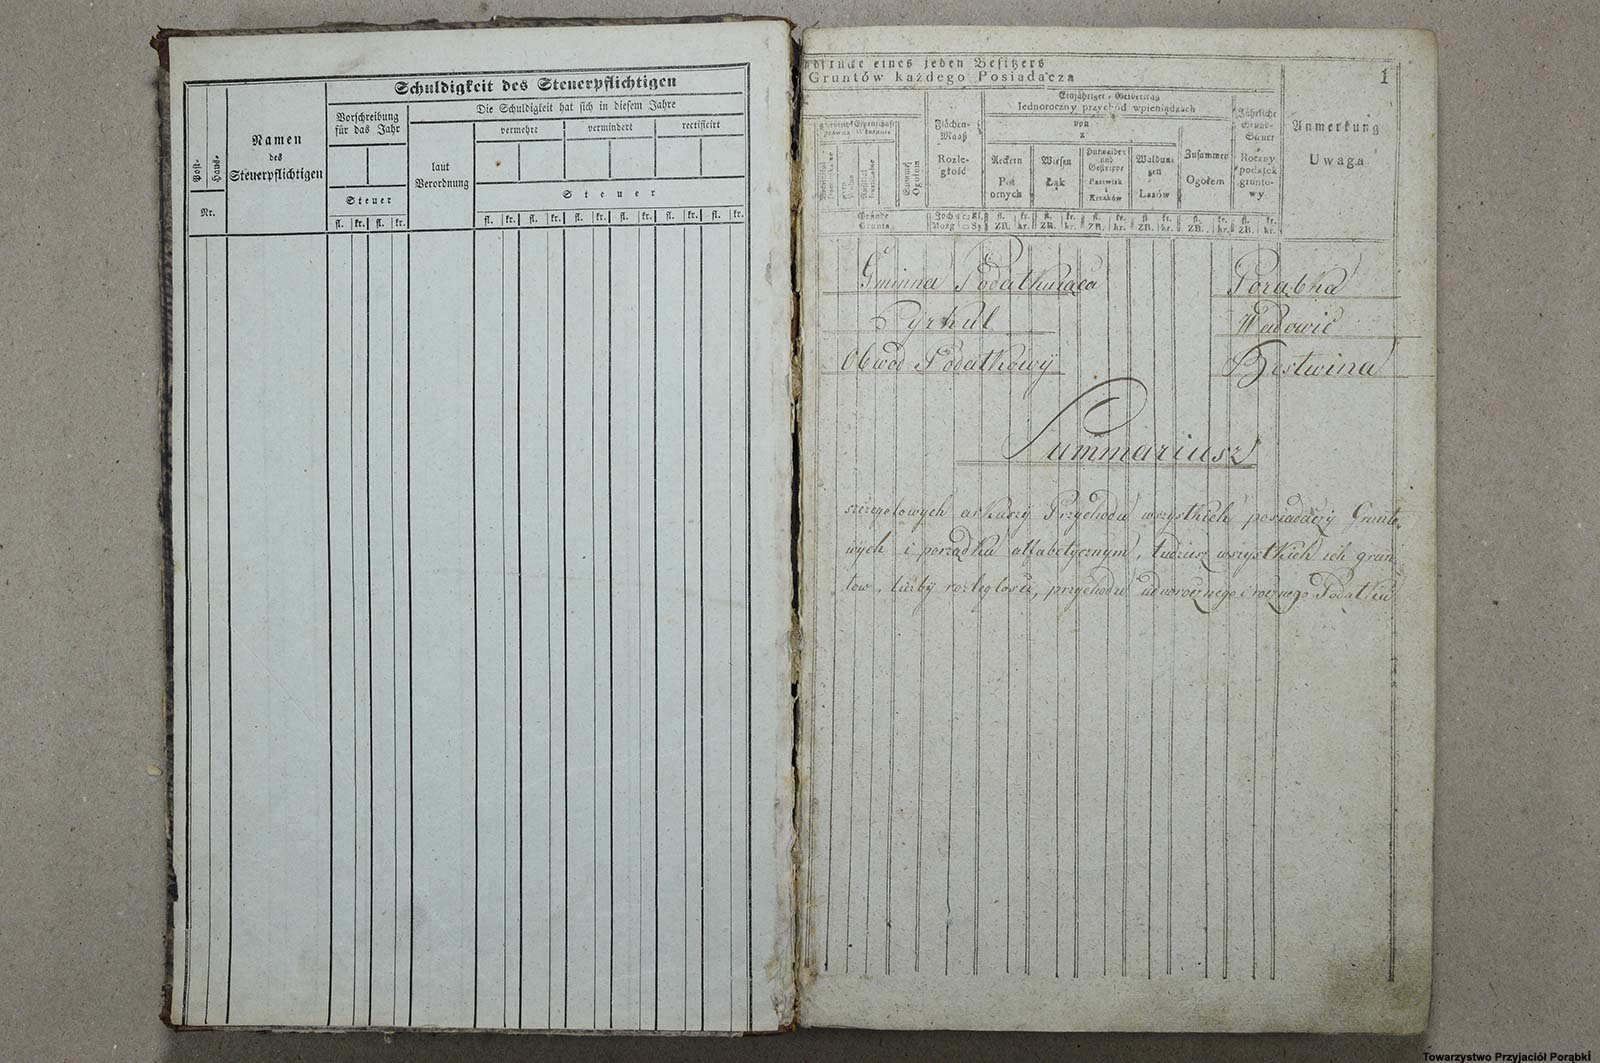 Schuldigkeit des Steuerpflichtigen
Post-
Haus-
Nr.
Namen
des
Steuerpflichtigen
Vorschreibung
für das Jahr
Steuer
fl. kr. fl. kr.
Die Schuldigkeit hat sich in diesem Jahre
laut
Verordnung
vermehrt vermindert rectificirt
Steuer
fl. kr. fl. kr. fl. kr. fl. kr. fl. kr. fl. kr.
1
eines jeden Besitzers
Gruntów każdego Posiadacza
Gründe
Grunta
Flächen-
Maaß
Rozle-
głość
Einjähriger Geldertrag
Iednoroczny przychód wpieniądzach
von
z
Aeckern
Pól
ornych
Wiesen
Łąk
Hutweiden
und
Gestrippe
Pastwisk
i
Krzaków
Waldun-
gen
Lasów
Zusammen
Ogołem
Jährliche
Grund-
Steuer
Roczny
podatek
grunto-
wy
Anmerkung
Uwaga
fl. kr. fl. kr. fl. kr. fl. kr. fl. kr. fl. kr.
ZR. kr. ZR. kr. ZR. kr. ZR. kr. ZR. kr. ZR. kr.
Gminna Podatkuiąca Porąbka
Cyrkul Wadowic
Obwod Podatkowy Bestwina
Summariusz
szczegolowych arkuszy Przychodu wszystkich posiadaczy Grunto-
wych i porządku alfabetycznym, tudzież wszystkich ich grun-
tow, liczby rozleglosci, przychodu i rocznego Podatku
Towarzystwo Przyjaciół Porąbki